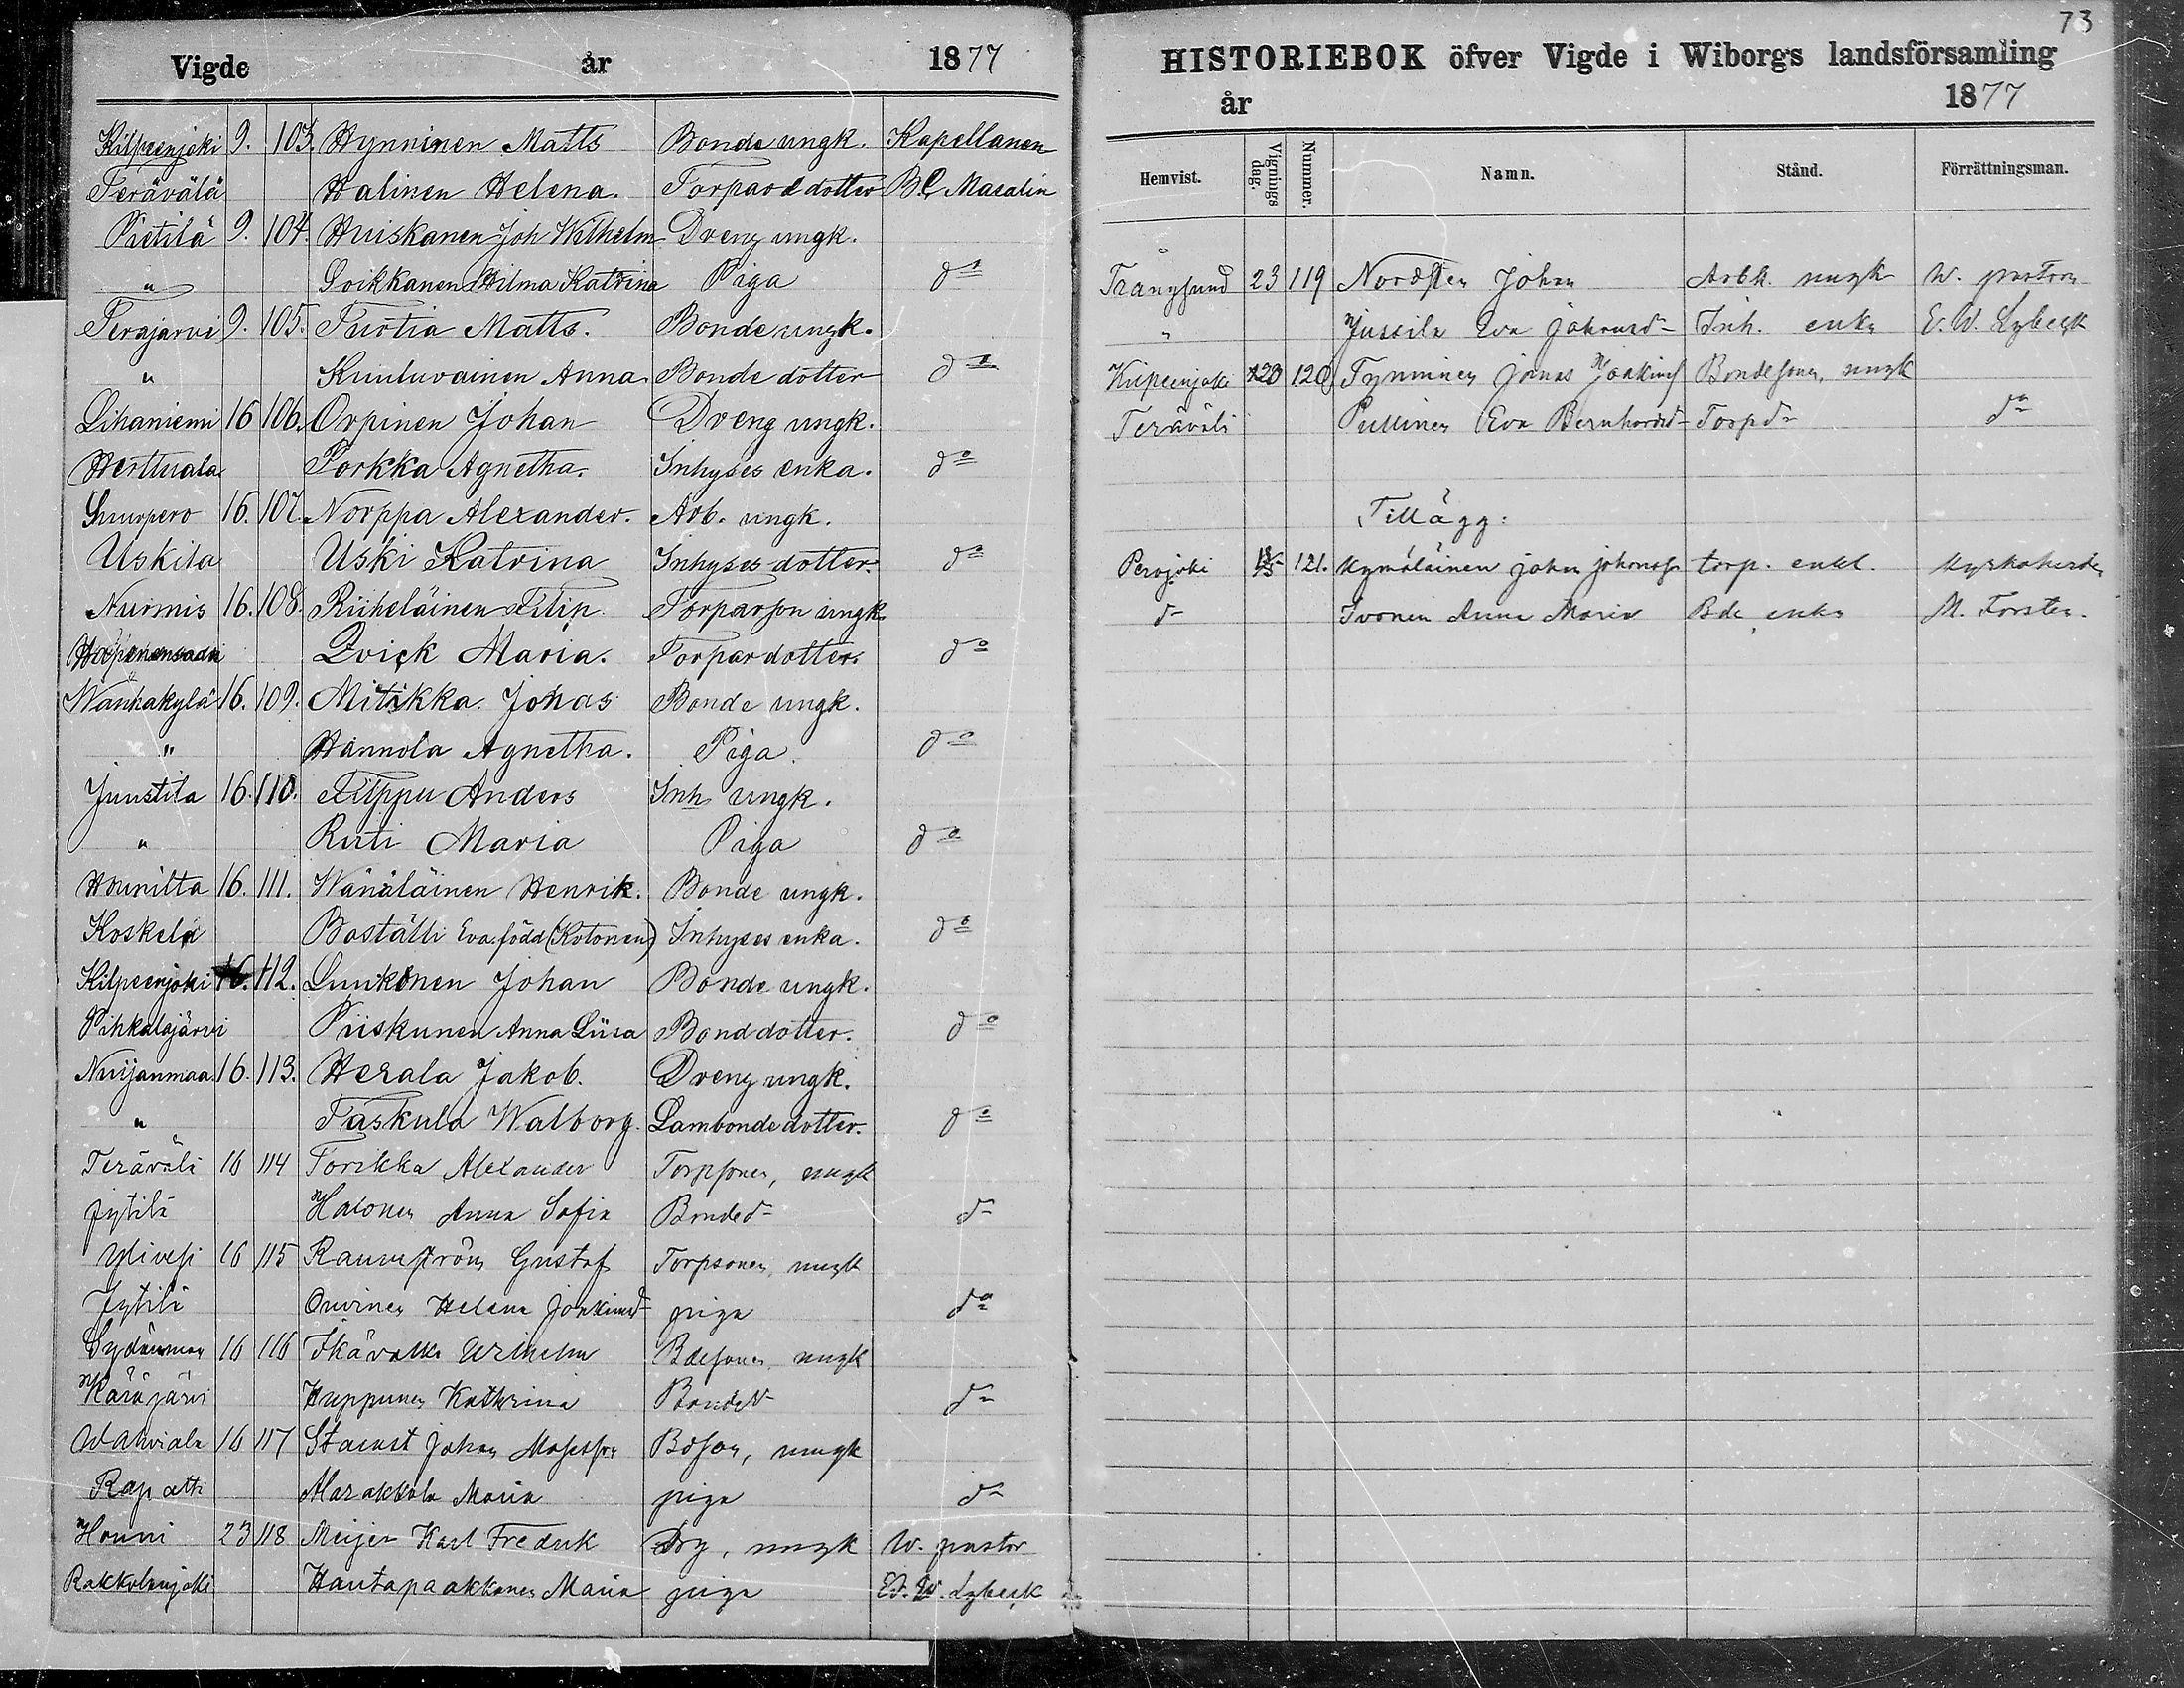 Vigde år 1877
Kilpeenjoki 9. 103. Hynninen Matts Bonde ungk. Kapellanen
Terävälä Halinen Helena. Torpare dotter B C Masalin
Pietilä 9. 104. Huiskanen Joh Wilhelm Dreng ungk.
" Soikkanen Hilma Katrina Piga do
Terajärvi 9. 105. Turtia Matts. Bonde ungk.
" Kuuluvainen Anna Bonde dotter do
Lihaniemi 16 106. Orpinen Johan Dreng ungk.
Herttuala Porkka Agnetha. Inhyses enka. do
Suurpero 16. 107. Norppa Alexander. Arb. ungk.
Uskila Uski Katrina Inhyses dotter. do
Nurmis 16. 108. Riiheläinen Filip Torparson ungk.
Qvick Maria. Torpar dotter. do
Wanhakylä 16. 109. Mitikka Johas Bonde ungk.
" Hannola Agnetha. Piga. do
Juustila 16. 110. Filppu Anders Inh ungk.
" Ruti Maria Piga do
Hounitta 16. 111. Wänäläinen Henrik. Bonde ungk.
Koskela Boställi Eva. född (Kotonen) Inhyses enka. do
Kilpeenjoki 16. 112. Luukonen Johan Bonde ungk.
Pihkalajärvi Piiskunen Anna Liisa Bonddotter. do
Nuijanmaa 16. 113. Herala Jakob. Dreng ungk.
" Taskula Walborg. Lambonde dotter. do
Teräväli 16 114 Torikka Alexander Torpsonen, ungk
Jytilä Halonen Anna Sofia Bonded- do
Ylivesi 16 115 Raunström Gustaf Torpsonen, ungk
Jytilä Onvinen Helena Joakimsd- piga do
16 116 Ikävalko Wilhelm Bdesonen, ungk
Käräjärvi Huppunen Kathrina Bonded- do
Wahviala 16 117 Staust Johan Mosesson Bdson, ungk
Rapatti Marakkala Maria piga do
Houni 23 118 Meijer Karl Fredrik Drg, ungk W. pastor
Rakkolanjoki Hautapaakkanen Maria piga Ed. W. Lybeck
73
HISTORIEBOK öfver Vigde i Wiborgs landsförsamling
år 1877
Hemvist. Vignings dag. Nummer. Namn. Stånd. Förrättningsman.
Trångsund 23 119 Nordsten Johan Arbk. ungk W. pastorn
" Jussila Eva Johansd- Inh. enka E. W. Lybeck
Kilpeenjoki 120 Tynninen Jonas Joakimss Bondesonen, ungk
Teräväli Pullinen Eva Bernhardsd- Torpd- do
Tillägg:
Perojoki 121. Kymäläinen Johan Johansson torp. enkl. Kyrkoherden
d- Ivonen Anna Maria Bde enka M. Forstén.